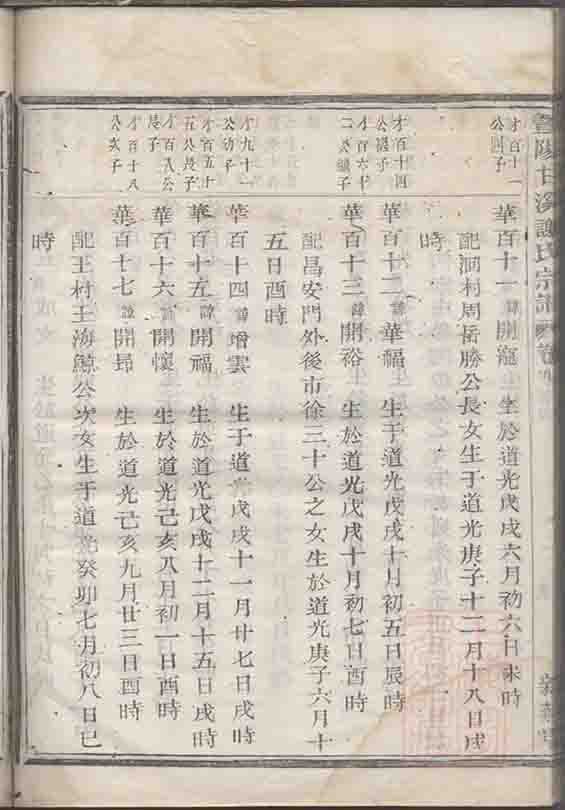 暨陽甘溪謝氏宗譜 卷
才百十一
公四子
華百十一 諱開寵 生於道光戊戌六月初六日未時
配洞村周岳勝公長女生于道光庚子十二月十八日戌
時
才百十四
公四子
華百十二 諱華福 生于道光戊戌十月初五日辰時
才百六十
二公繼子
華百十三 諱開裕 生於道光戊戌十月初七日酉時
配昌安門外後市徐三十公之女生於道光庚子六月十
五日酉時
才九十一
公幼子
華百十四 諱增雲 生于道光戊戌十一月廿七日戌時
才百五十
五公長子
華百十五 諱開福 生於道光戊戌十二月十五日戌時
才百八公
長子
華百十六 諱開懷 生於道光己亥八月初一日酉時
才百十八
公次子
華百十七 諱開昂 生於道光己亥九月廿三日酉時
配王村王海鯨公次女生于道光癸卯七月初八日巳
時